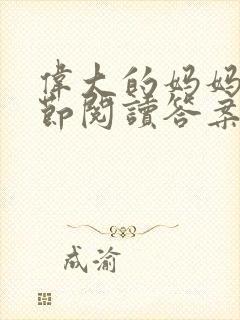 偉大的妈妈
節閱讀答案
成渝